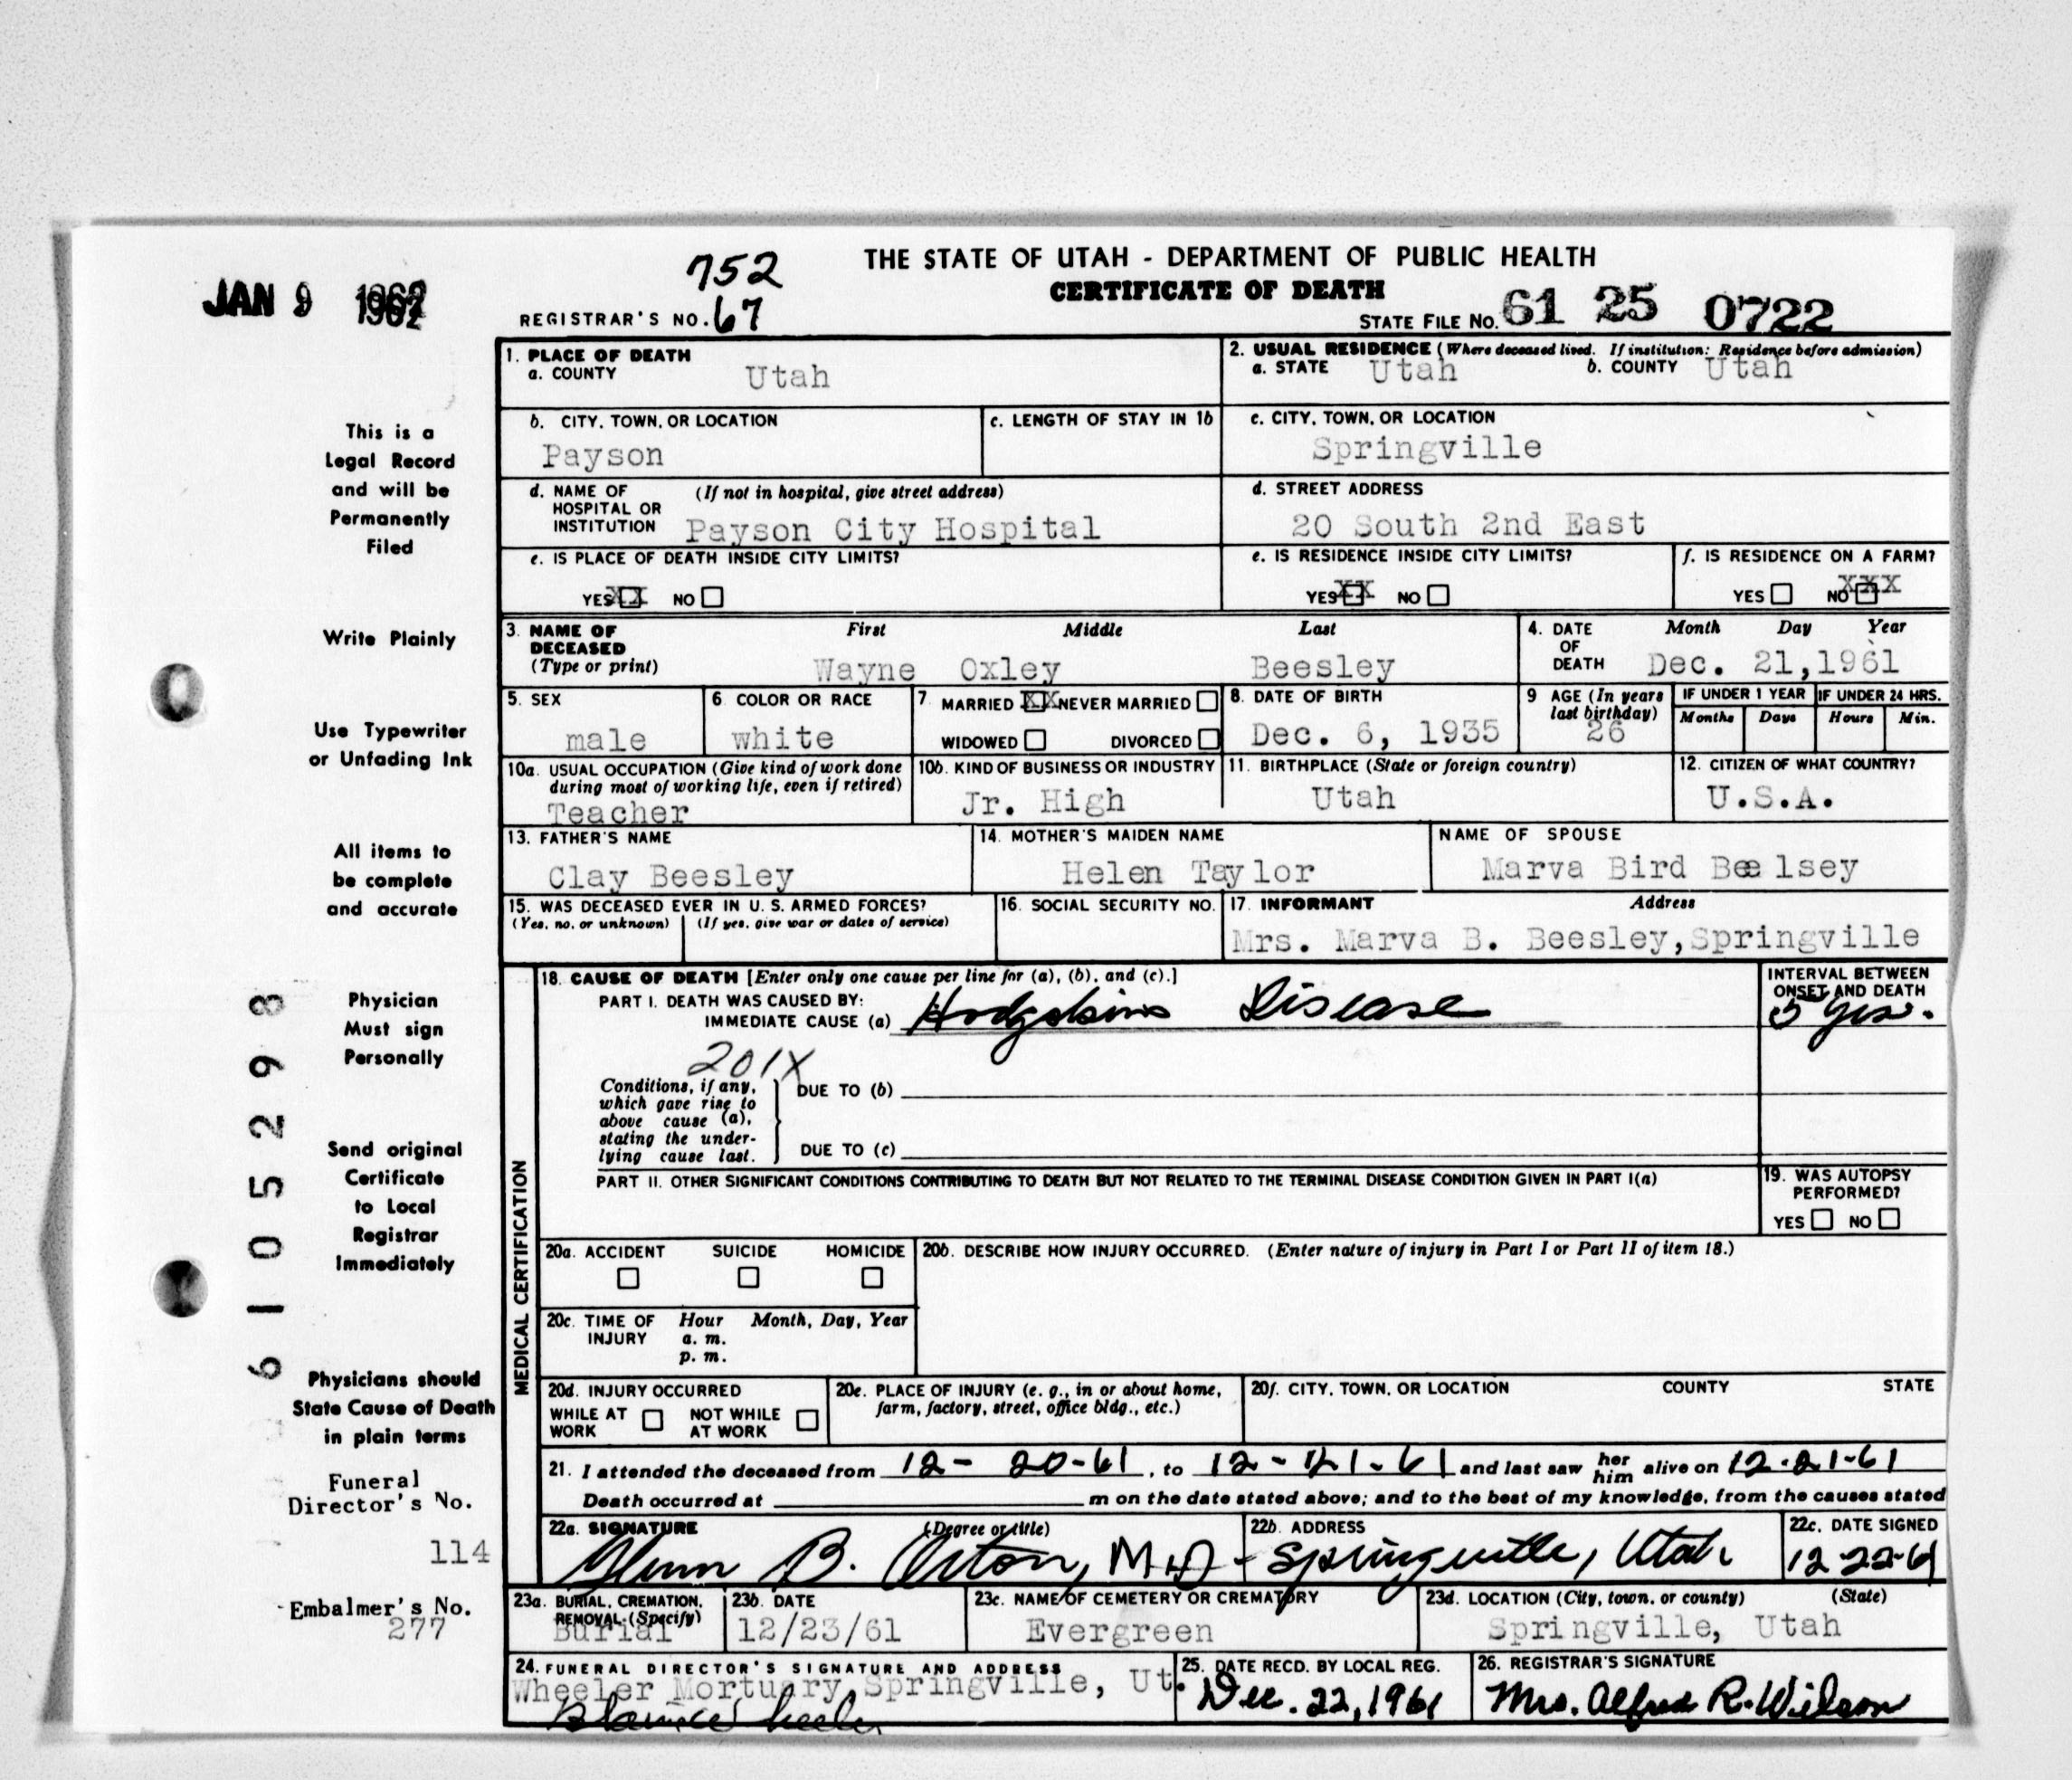 THE STATE OF UTAH - DEPARTMENT OF PUBLIC HEALTH
CERTIFICATE OF DEATH
JAN 9 1962
752
REGISTRAR'S NO. 67
STATE FILE No. 61 25 0722
1. PLACE OF DEATH
a. COUNTY Utah
2. USUAL RESIDENCE (Where deceased lived. If institution: Residence before admission)
a. STATE Utah b. COUNTY Utah
b. CITY, TOWN, OR LOCATION
Payson
c. LENGTH OF STAY IN 1b
c. CITY, TOWN, OR LOCATION
Springville
d. NAME OF HOSPITAL OR INSTITUTION (If not in hospital, give street address)
Payson City Hospital
d. STREET ADDRESS
20 South 2nd East
e. IS PLACE OF DEATH INSIDE CITY LIMITS?
YES XX NO
e. IS RESIDENCE INSIDE CITY LIMITS?
YES XX NO
f. IS RESIDENCE ON A FARM?
YES NO XXX
3. NAME OF DECEASED (Type or print)
First Middle Last
Wayne Oxley Beesley
4. DATE OF DEATH Month Day Year
Dec. 21,1961
5. SEX
male
6 COLOR OR RACE
white
7 MARRIED XX NEVER MARRIED
WIDOWED DIVORCED
8. DATE OF BIRTH
Dec. 6, 1935
9 AGE (In years last birthday)
26
IF UNDER 1 YEAR
Months Days
IF UNDER 24 HRS.
Hours Min.
10a. USUAL OCCUPATION (Give kind of work done during most of working life, even if retired)
Teacher
10b. KIND OF BUSINESS OR INDUSTRY
Jr. High
11. BIRTHPLACE (State or foreign country)
Utah
12. CITIZEN OF WHAT COUNTRY?
U.S.A.
13. FATHER'S NAME
Clay Beesley
14. MOTHER'S MAIDEN NAME
Helen Taylor
NAME OF SPOUSE
Marva Bird Beelsey
15. WAS DECEASED EVER IN U. S. ARMED FORCES?
(Yes, no, or unknown) (If yes, give war or dates of service)
16. SOCIAL SECURITY NO.
17. INFORMANT Address
Mrs. Marva B. Beesley, Springville
MEDICAL CERTIFICATION
18. CAUSE OF DEATH [Enter only one cause per line for (a), (b), and (c).]
PART I. DEATH WAS CAUSED BY:
IMMEDIATE CAUSE (a) Hodgskins Disease
INTERVAL BETWEEN ONSET AND DEATH
5 yrs.
201X
Conditions, if any, which gave rise to above cause (a), stating the underlying cause last.
DUE TO (b)
DUE TO (c)
PART II. OTHER SIGNIFICANT CONDITIONS CONTRIBUTING TO DEATH BUT NOT RELATED TO THE TERMINAL DISEASE CONDITION GIVEN IN PART I(a)
19. WAS AUTOPSY PERFORMED?
YES NO
20a. ACCIDENT SUICIDE HOMICIDE
20b. DESCRIBE HOW INJURY OCCURRED. (Enter nature of injury in Part I or Part II of item 18.)
20c. TIME OF INJURY Hour Month, Day, Year
a. m.
p. m.
20d. INJURY OCCURRED
WHILE AT WORK NOT WHILE AT WORK
20e. PLACE OF INJURY (e. g., in or about home, farm, factory, street, office bldg., etc.)
20f. CITY, TOWN, OR LOCATION COUNTY STATE
21. I attended the deceased from 12-20-61, to 12-21-61 and last saw her him alive on 12-21-61
Death occurred at m on the date stated above; and to the best of my knowledge, from the causes stated
22a. SIGNATURE (Degree or title)
Glenn B. Orton, M.D.
22b. ADDRESS
Springville, Utah
22c. DATE SIGNED
12-22-61
23a. BURIAL, CREMATION, REMOVAL (Specify)
Burial
23b. DATE
12/23/61
23c. NAME OF CEMETERY OR CREMATORY
Evergreen
23d. LOCATION (City, town, or county) (State)
Springville, Utah
24. FUNERAL DIRECTOR'S SIGNATURE AND ADDRESS
Wheeler Mortuary Springville, Ut.
25. DATE RECD. BY LOCAL REG.
Dec. 22, 1961
26. REGISTRAR'S SIGNATURE
Mrs. Alfred R. Wilson
This is a
Legal Record
and will be
Permanently
Filed
Write Plainly
Use Typewriter
or Unfading Ink
All items to
be complete
and accurate
Physician
Must sign
Personally
Send original
Certificate
to Local
Registrar
Immediately
Physicians should
State Cause of Death
in plain terms
Funeral
Director's No.
114
Embalmer's No.
277
61 05298